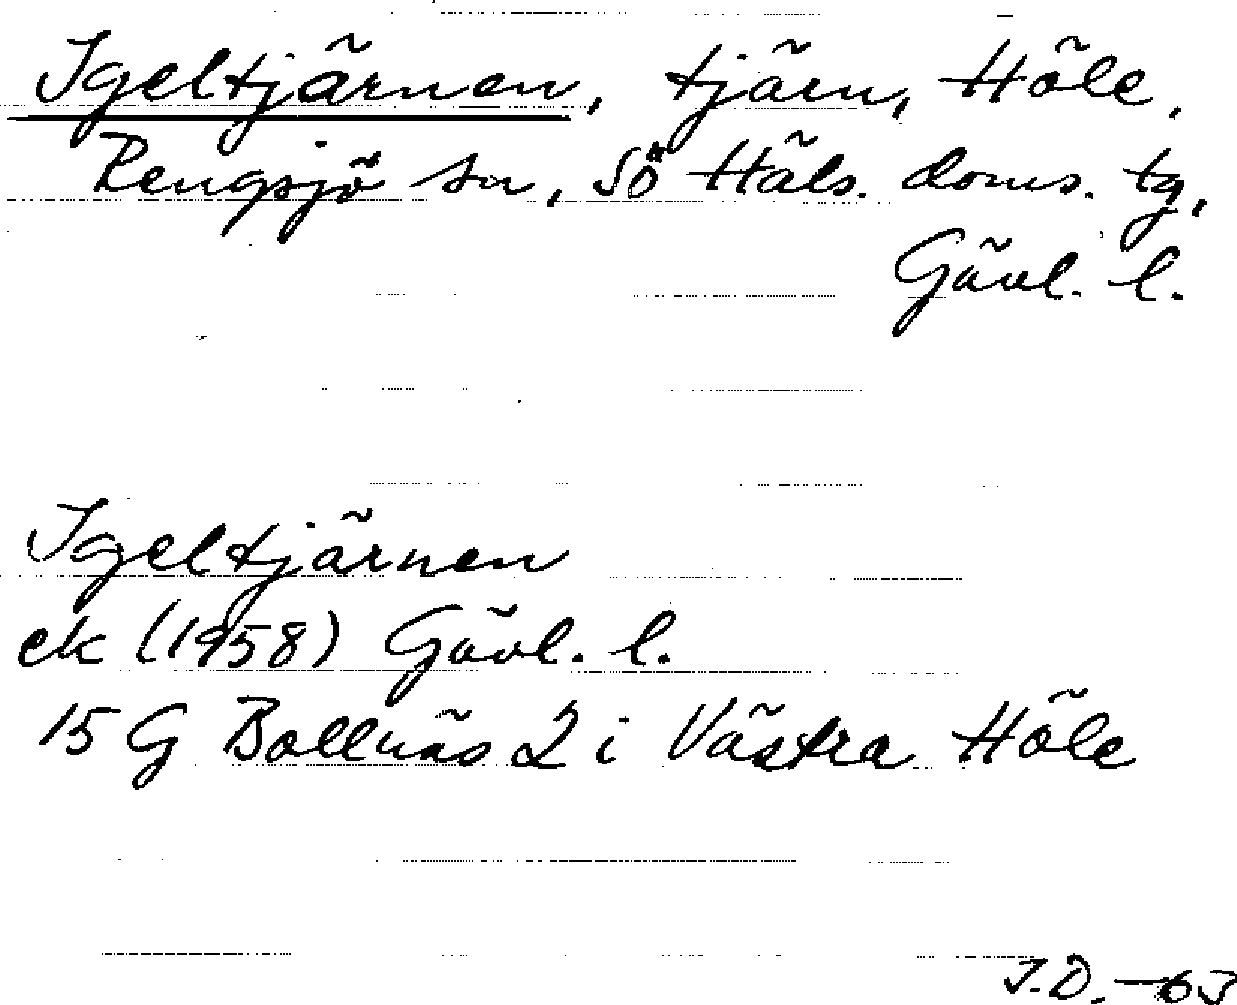 Igeltjärnen, tjärn, Höle,
Rengsjö sn, Sö Häls. doms. tg,
Gävl. l.
Igeltjärnen
ek (1958) Gävl. l.
15 G Bollnäs 2 i Västra Höle
I.D. -63